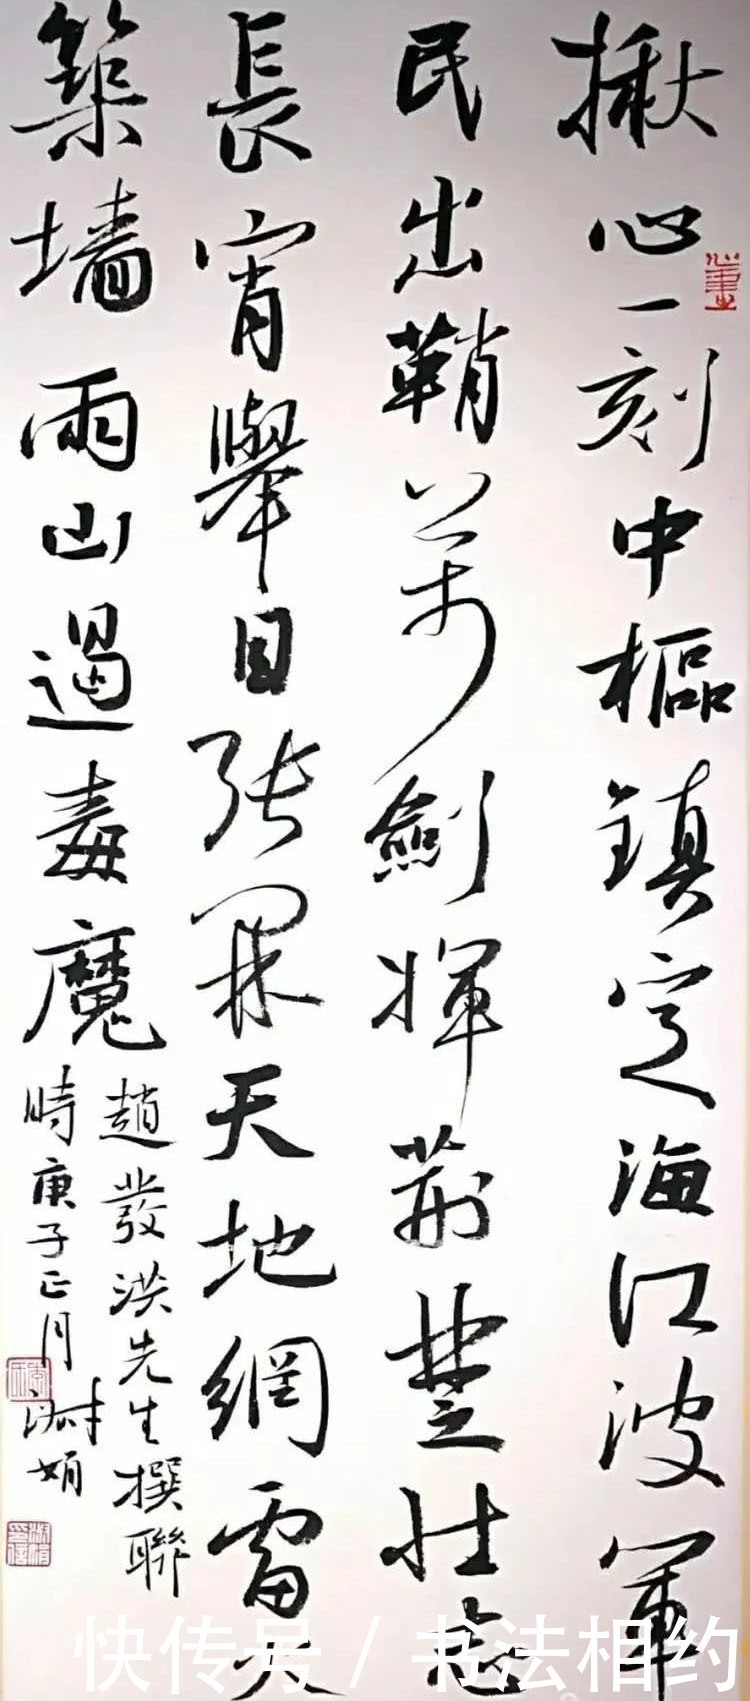 揪心一刻中樞鎮定海江波軍
民出鞘萬劍揮荊楚壮志
長宵舉目張天地網雷火
築墻兩山遏毒魔
趙發洪先生撰聯
時庚子正月澍娟
快传号/书法相约